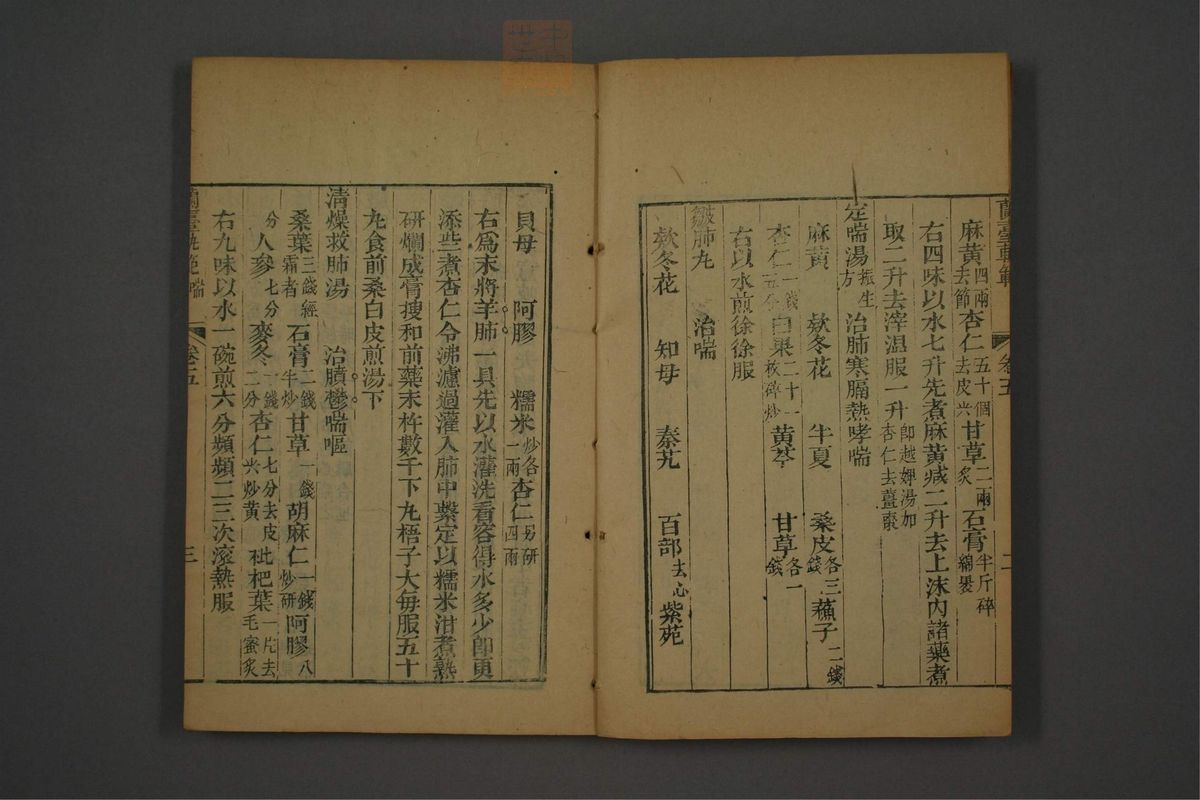 蘭臺軌範 卷五 二
麻黃四兩去節杏仁五十個去皮尖甘草二兩炙石膏半斤碎綿裹
右四味以水七升先煮麻黃減二升去上沫內諸藥煮
取二升去滓溫服一升卽越婢湯加杏仁去薑棗
定喘湯振生方治肺寒膈熱哮喘
麻黃 欵冬花 半夏 桑皮各三錢蘇子二錢
杏仁一錢五分白果二十一枚碎炒黃芩 甘草各一錢
右以水煎徐徐服
皺肺丸 治喘
欵冬花 知母 秦艽 百部去心紫苑
貝母 阿膠 糯米炒各一兩杏仁另研四兩
右爲末將羊肺一具先以水灌洗看容得水多少卽更
添些煮杏仁令沸濾過灌入肺中繫定以糯米泔煮熟
研爛成膏搜和前藥末杵數千下丸梧子大每服五十
丸食前桑白皮煎湯下
清燥救肺湯 治膹鬱喘嘔
桑葉三錢經霜者石膏二錢半炒甘草一錢胡麻仁一錢炒研阿膠八
分人參七分麥冬一錢二分杏仁七分去皮尖炒黃枇杷葉一片去毛蜜炙
右九味以水一碗煎六分頻頻二三次滾熱服
蘭臺軌範 喘 卷五 三